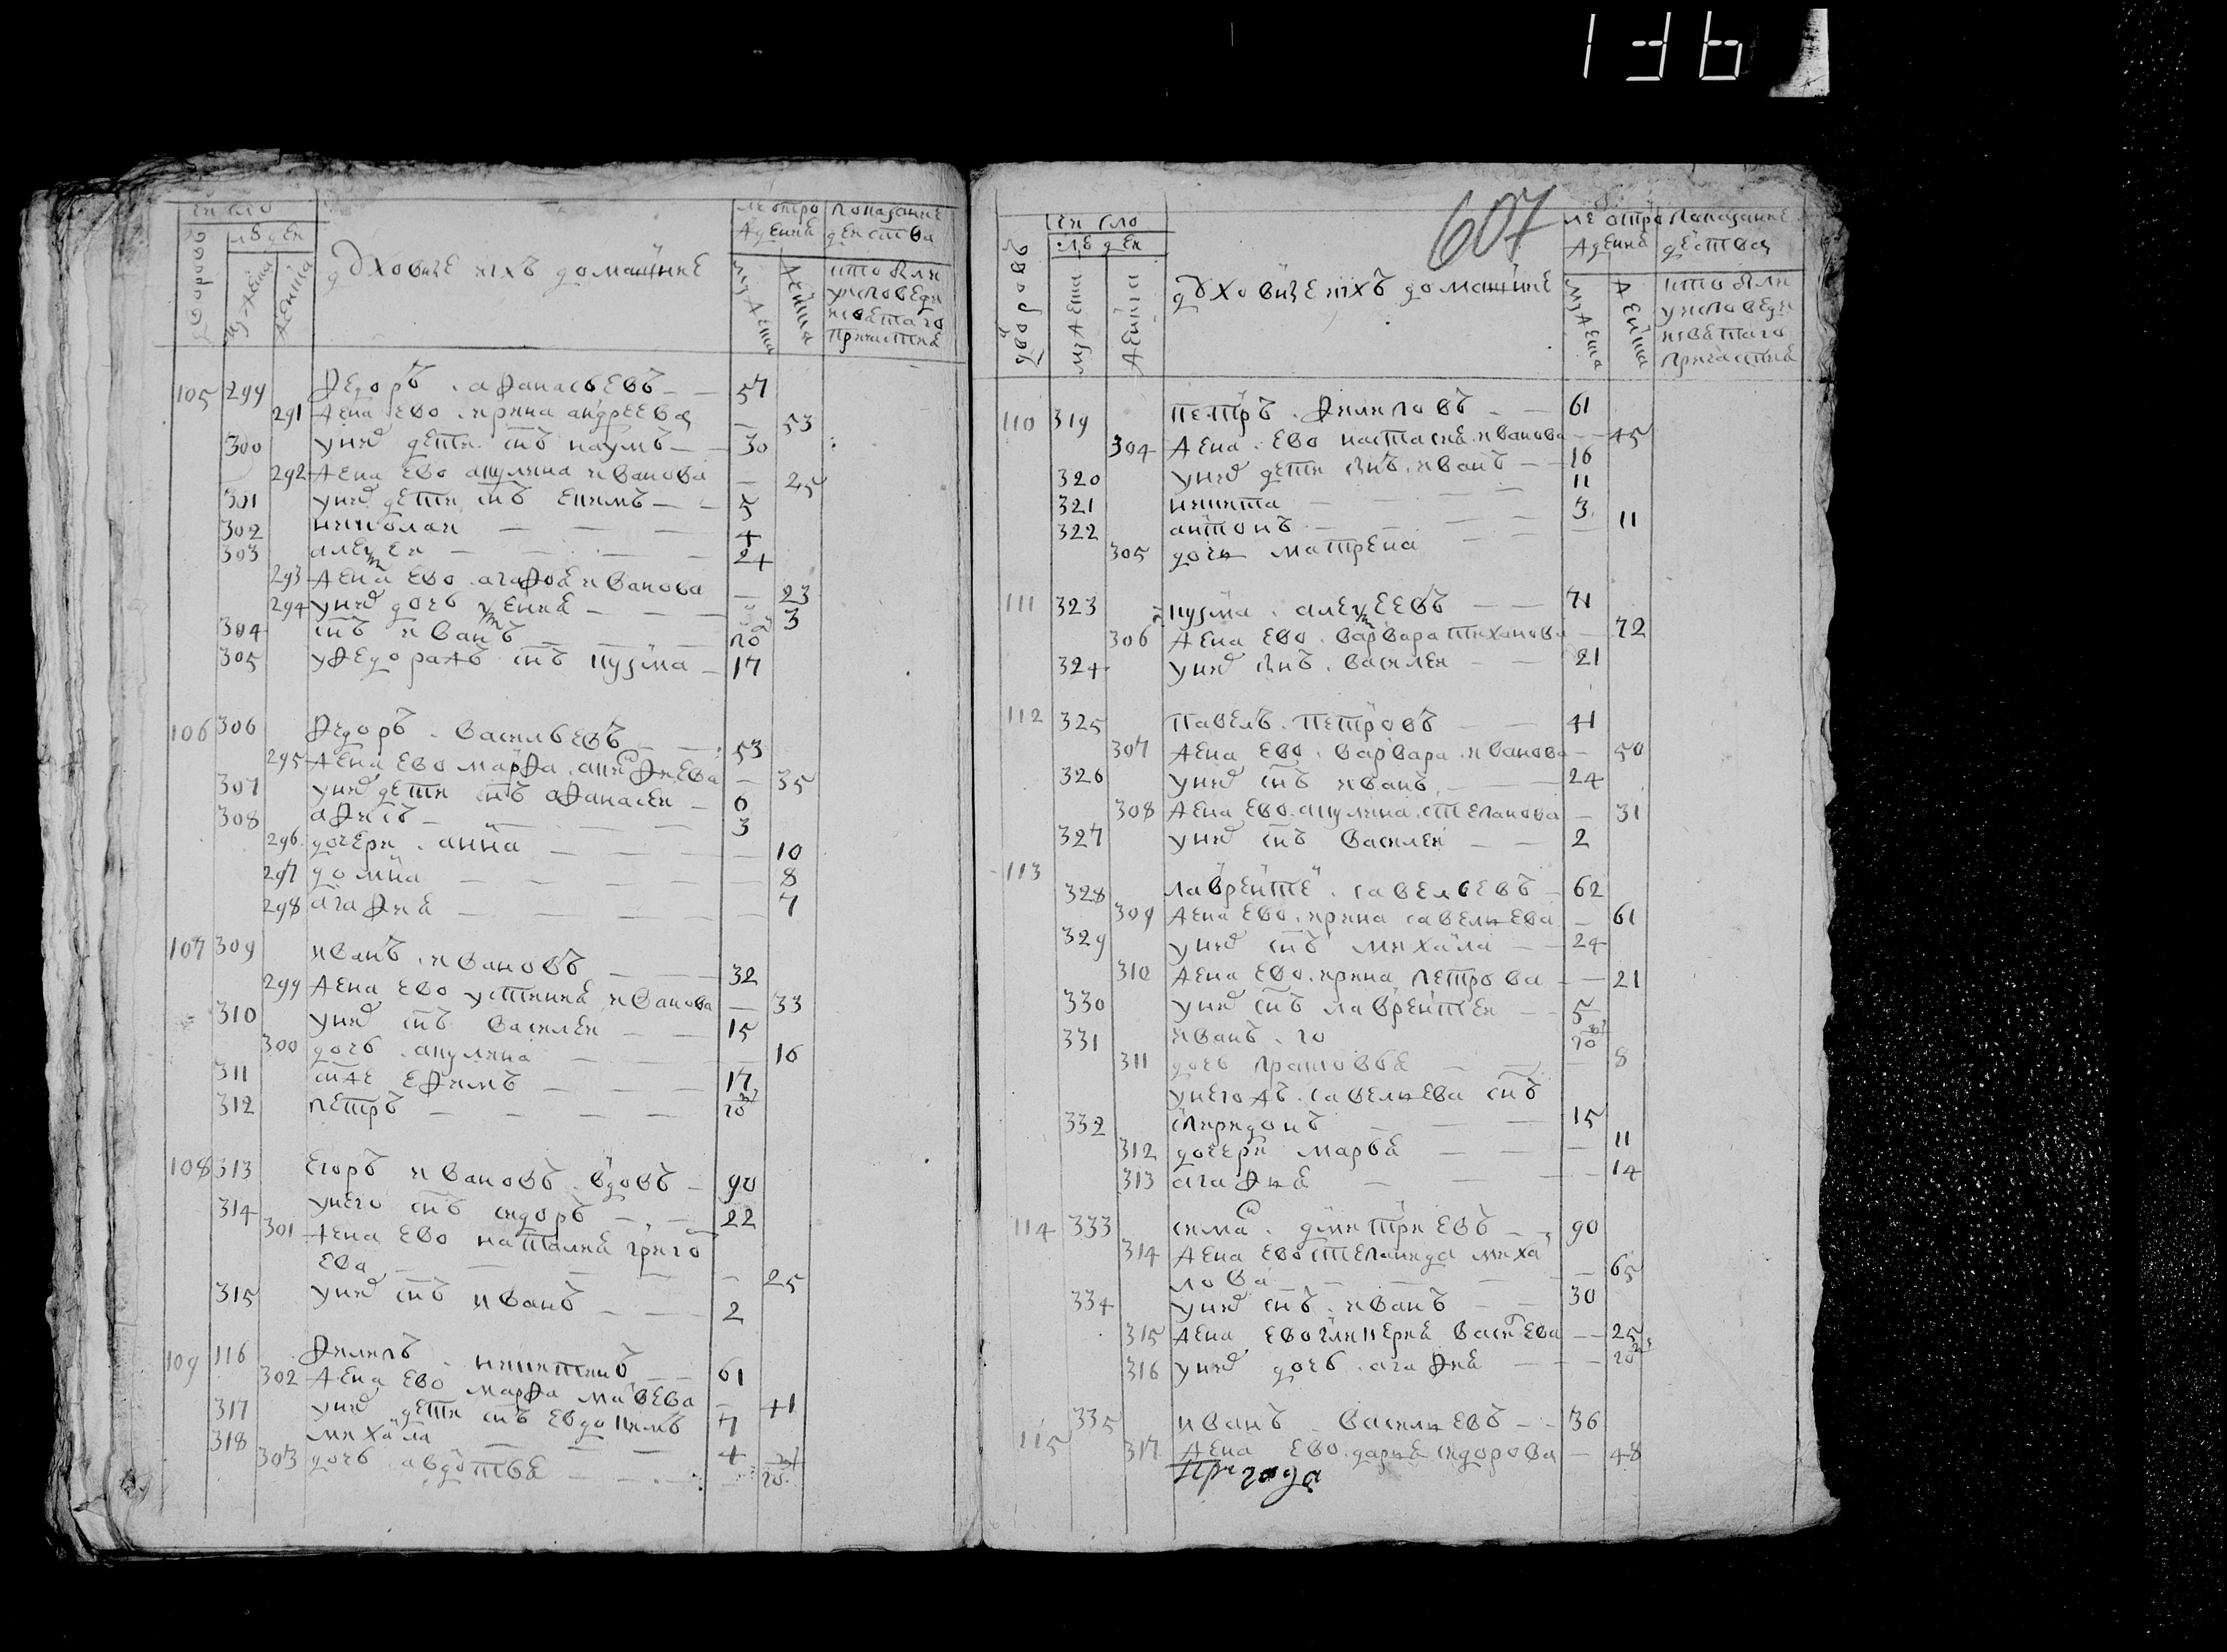 136
число
людеи
дворовъ
мужеска
женска
духовные ихъ домашние
лѣ отро
ждения
мужеска
женска
показание
деиства
кто былъ
у исповеди
и святаго
причастия
105 299 Ѳедоръ аѳанасьевъ 57
291 жена ево ирина андреева 53
300 у них дети сн҃ъ наумъ 30
292 жена ево акулина иванова 25
301 у них дети сн҃ъ екимъ 5
302 николаи 4
303 алексеи 24
293 жена ево агафья иванова 23
294 у них дочь ксения 3
304 сн҃ъ иванъ по
305 у ѳедора жъ сн҃ъ кузма 17
106 306 Ѳедоръ васильевъ 53
295 жена ево марѳа 35
307 у них дети сн҃ъ аѳанасеи 6
308 3
296 дочери анна 10
297 домна 8
298 агаѳия 7
107 309 иванъ ивановъ 32
299 жена ево устиния иванова 33
310 у них сн҃ъ василеи 15
300 дочь акулина 16
311 еѳимъ 17
312 петръ по
108 313 егоръ ивановъ вдовъ 90
314 у него сн҃ъ сидоръ 22
301 жена ево наталия григо
ева 25
315 у них сн҃ъ иванъ 2
109 116 Ѳилипъ никитинъ 61
302 жена ево марѳа мавеева 41
317 у них дети сн҃ъ евдокимъ 7
318 михаила 4
303 дочь авдотья по
607
число
людеи
дворовъ
мужеска
женска
духовные ихъ домашние
лѣ отро
ждения
мужеска
женска
показание
деиства
кто былъ
у исповеди
и святаго
причастия
110 319 петръ ѳилиповъ 61
304 жена ево настасия иванова 45
320 у них дети сн҃ъ иванъ 16
321 никита 11
322 антонъ 3
305 дочи матрена 11
111 323 кузма алексеевъ 71
306 жена ево варвара тиханова 72
324 у них сн҃ъ василеи 21
112 325 павелъ петровъ 41
307 жена ево варвара иванова 50
326 у них сн҃ъ иванъ 24
308 жена ево акулина степанова 31
327 у них сн҃ъ василеи 2
113
328 лаврентеи савельевъ 62
309 жена ево ирина савелиева 61
329 у них сн҃ъ михаила 24
310 жена ево ирина петрова 21
330 у них сн҃ъ лаврентеи 5
331 иванъ го по
311 дочь прасковья 8
у негожъ савелиева сн҃ъ
332 спиридонъ 15
312 дочери марья 11
313 агаѳия 14
114 333 сима дмитриевъ 90
314 жена ево степанида миха
лова 65
334 у них сн҃ъ иванъ 30
315 жена ево гликерия васиева 25
316 у них дочь агаѳия по
335 иванъ василиевъ 36
115
317 жена ево дария сидорова 48